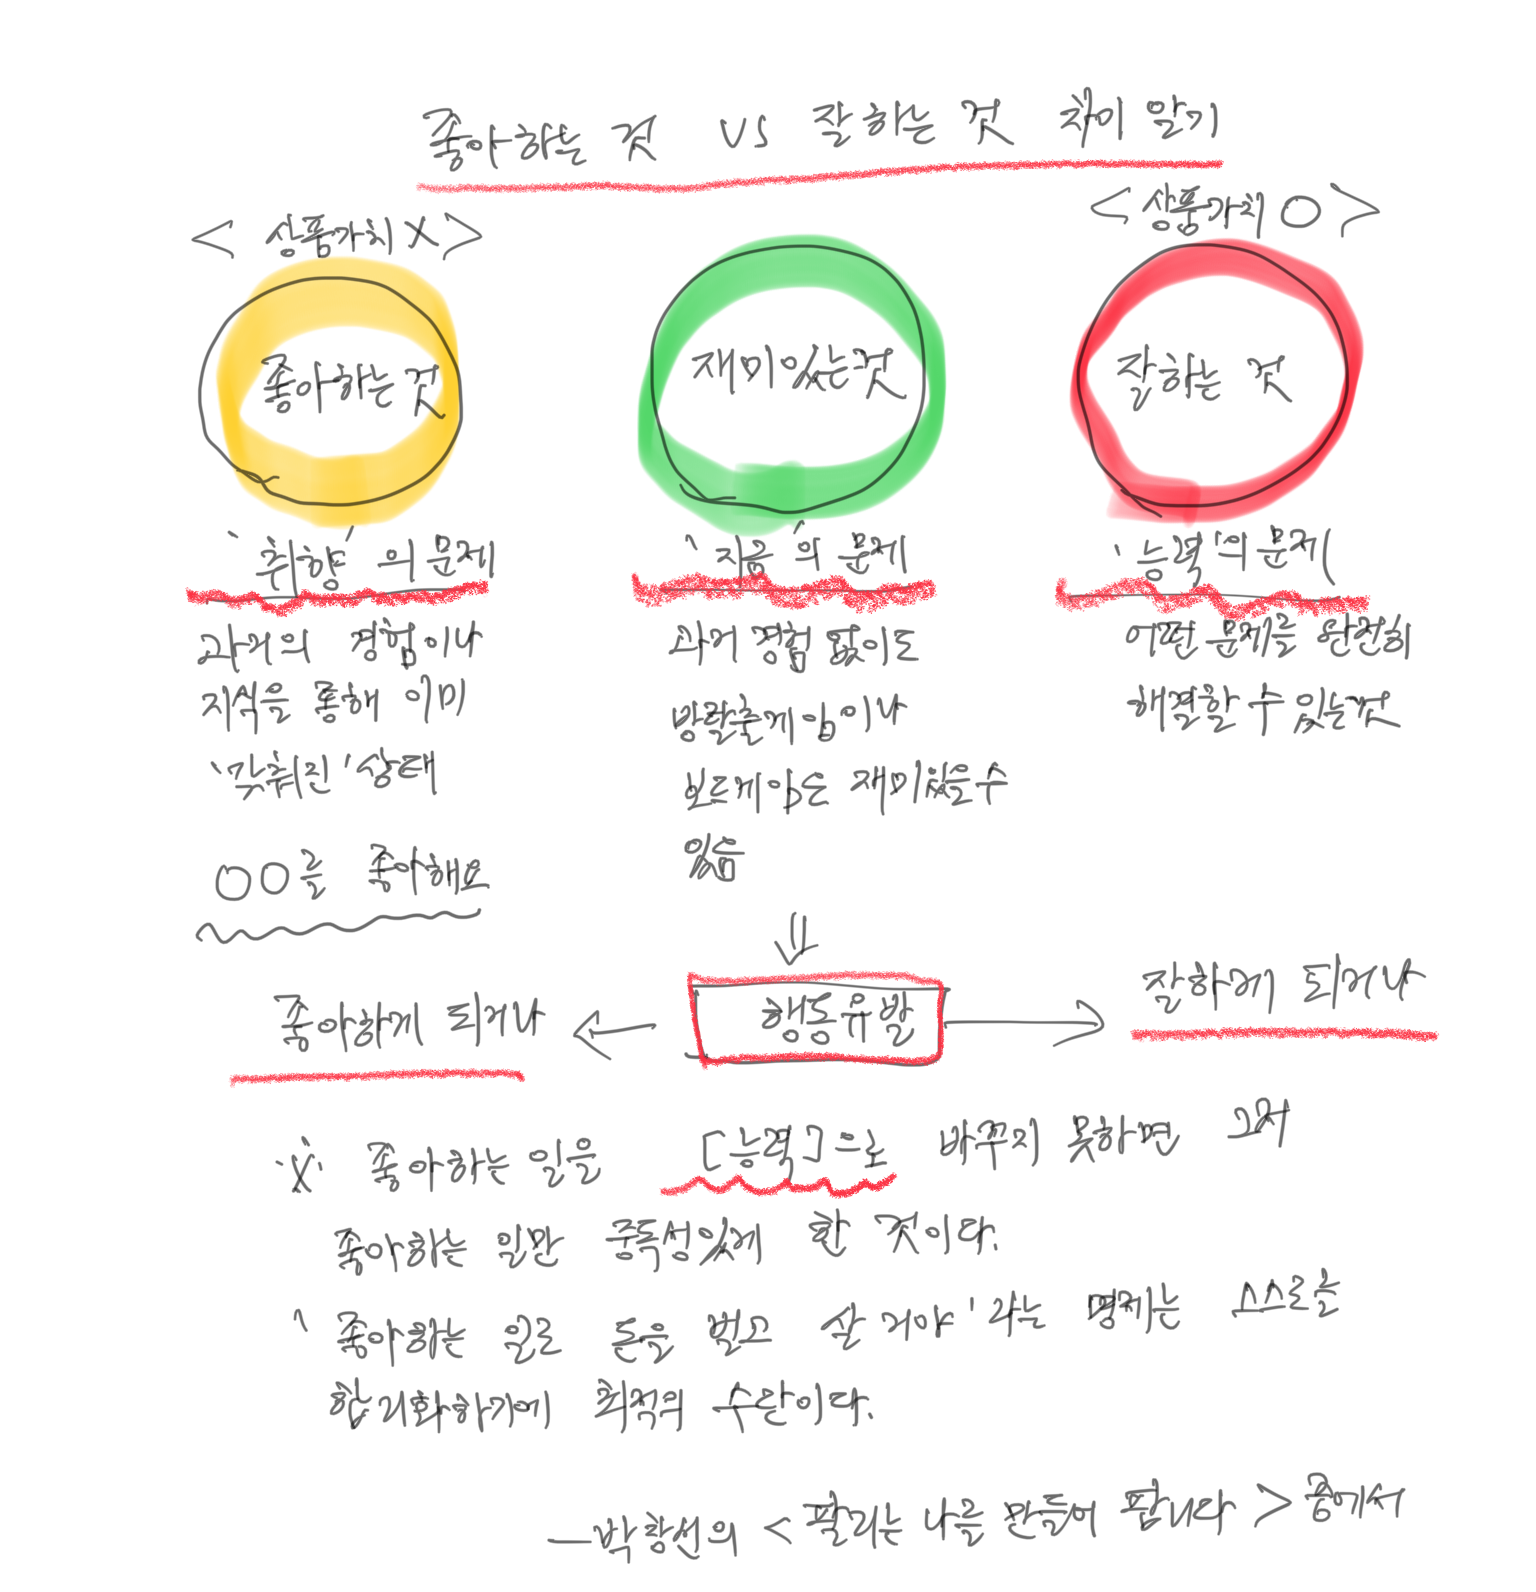 좋아하는 것 vs 잘하는 것 차이 알기
< 상품가치 X >
< 상품가치 O >
좋아하는 것
재미있는 것
잘하는 것
'취향'의 문제
과거의 경험이나
지식을 통해 이미
'갖춰진' 상태
OO를 좋아해요
'지금'의 문제
과거 경험 없이도
방탈출게임이나
보드게임은 재미있을 수
있음
'능력'의 문제
어떤 문제를 완전히
해결할 수 있는 것
⇓
좋아하게 되거나 ← 행동유발 → 잘하게 되거나
※ 좋아하는 일을 [능력]으로 바꾸지 못하면 그저
좋아하는 일만 중독성있게 한 것이다.
'좋아하는 일로 돈을 벌고 살 거야'라는 명제는 스스로를
합리화하기에 최적의 수단이다.
― 박창선의 < 팔리는 나를 만들어 팝니다 > 중에서